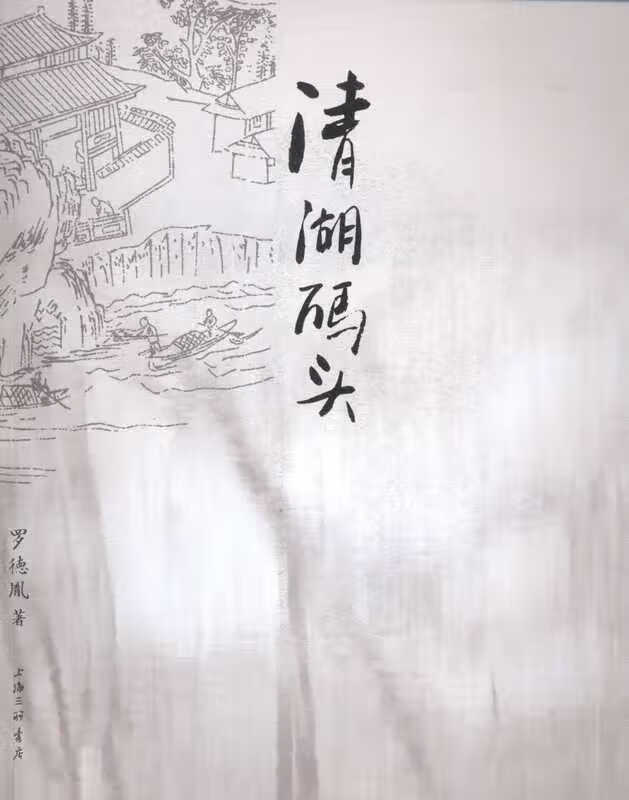 清湖码头
罗德胤 著
上海三联书店